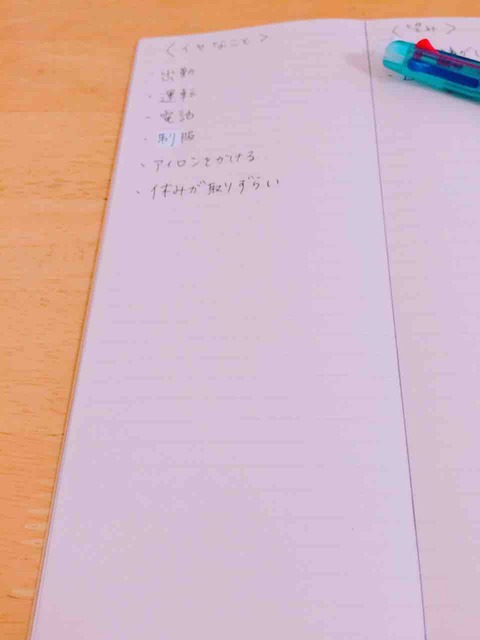 <イヤなこと>
・出勤
・運転
・電話
・制服
・アイロンをかける
・休みが取りずらい
<望み>